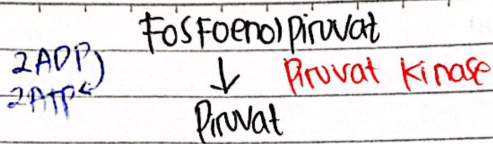 Fosfoenolpiruvat
2ADP
↓ Piruvat kinase
2ATP
Piruvat